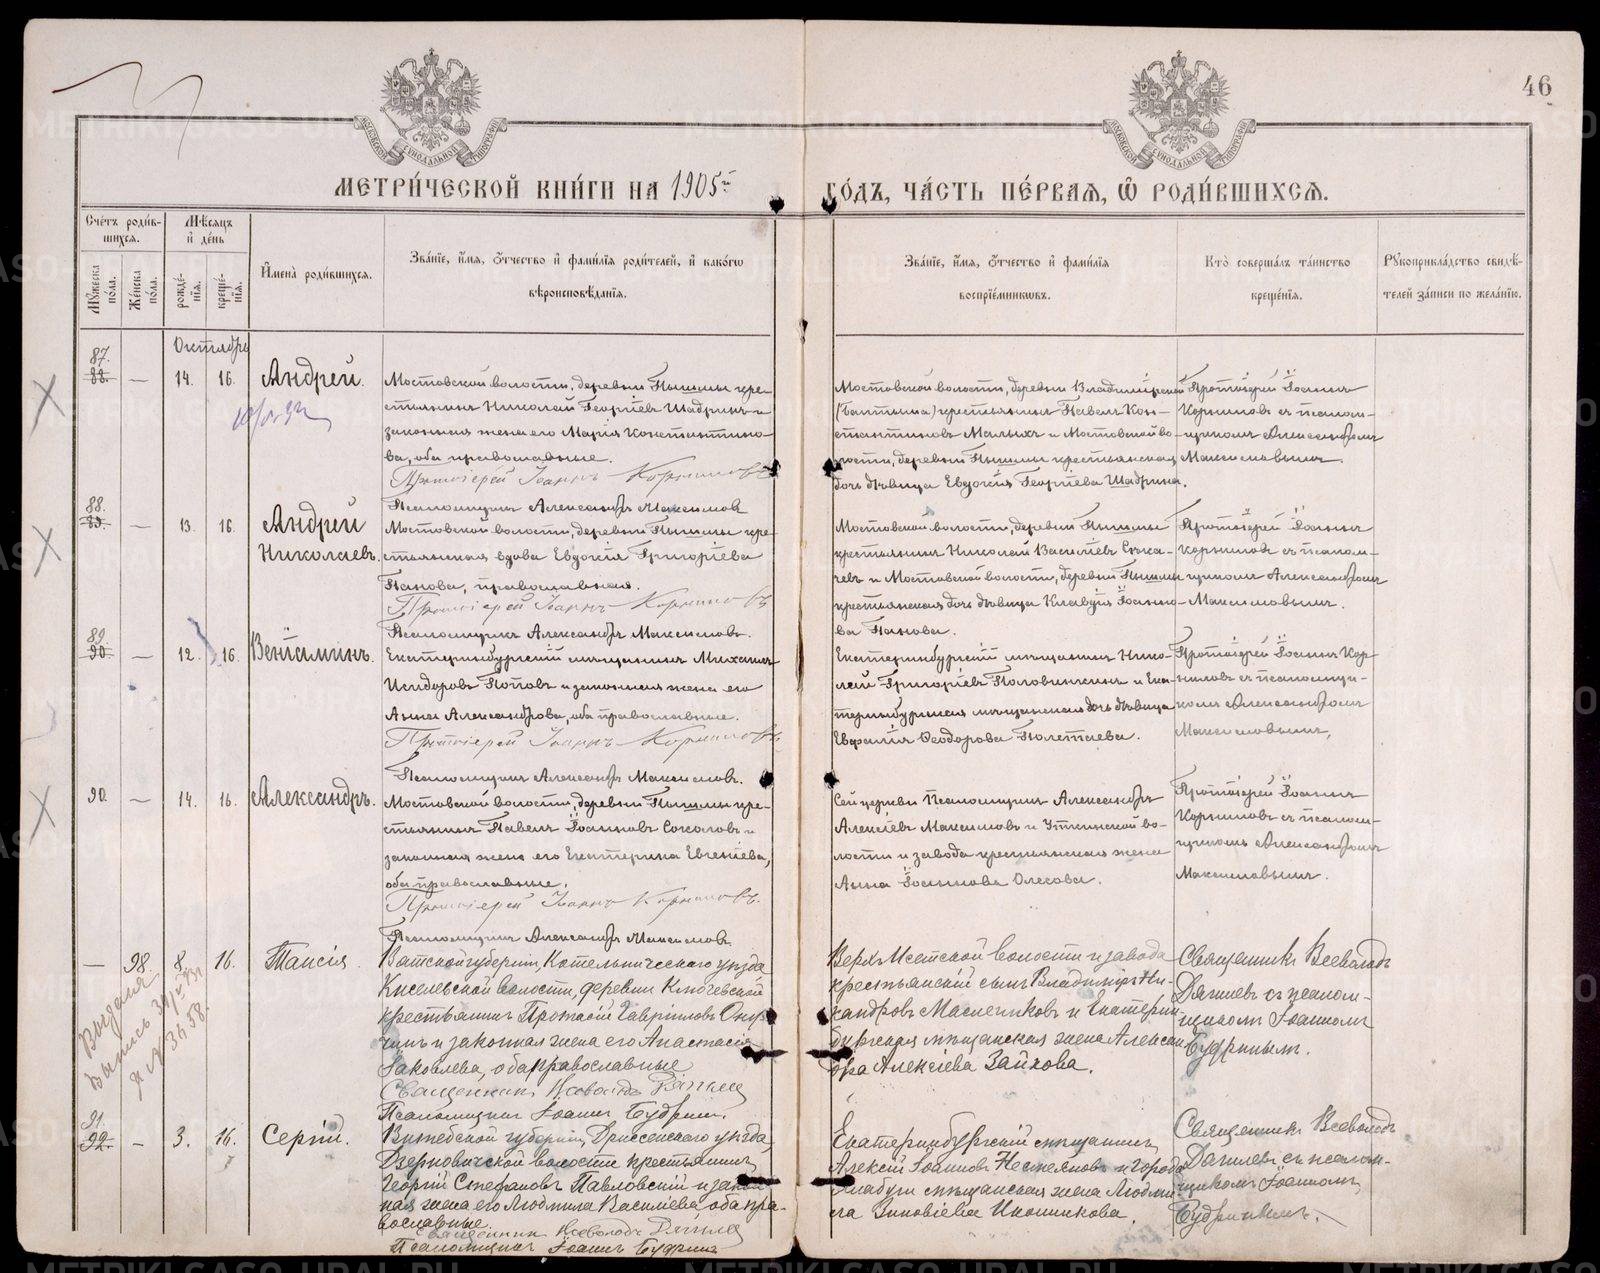 46
МОСКОВСКОЙ СѴНОДАЛЬНОЙ ТИПОГРАФІИ
МОСКОВСКОЙ СѴНОДАЛЬНОЙ ТИПОГРАФІИ
МЕТРИ́ЧЕСКОЙ КНИ́ГИ НА 1905й
ГО́ДЪ, ЧА́СТЬ ПЕ́РВАЯ, Ѡ҆ РОДИ́ВШИХСЯ.
Сче́тъ роди́в-
шихся.
Мѣ́сяцъ
и҆ де́нь
Мꙋ́жеска по́ла.
Же́нска по́ла.
рожде́-
нїя.
креще́-
нїя.
И҆мена̀ роди́вшихся.
Зва́нїе, и҆́мя, ѻ҆́тчество и҆ фами́лїя роди́телей, и҆ како́гѡ
вѣроисповѣ́данїя.
Зва́нїе, и҆́мя, ѻ҆́тчество и҆ фами́лїя
воспрїе́мникѡвъ.
Кто̀ соверша́лъ та́инство
креще́нїя.
Рꙋкоприкла́дство свидѣ́-
телей за́писи по жела́нїю.
Октябрь
87.
88. — 14. 16. Андрей.
Мостовской волости, деревни Пышмы кре-
стьянинъ Николай Георгіевъ Шадринъ и
законная жена его Марія Константино-
ва, оба православные.
Протоіерей Іоаннъ Корниловъ
Псаломщикъ Александръ Максимовъ
Мостовской волости, деревни Владимірской
крестьянинъ Павелъ Кон-
стантиновъ Малыхъ и Мостовской во-
лости, деревни Пышмы крестьянская
дочь дѣвица Евдокія Георгіева Шадрина.
Протоіерей Іоаннъ
Корниловъ съ псалом-
щикомъ Александромъ
Максимовымъ.
88.
89. — 13. 16. Андрей
Николаевъ.
Мостовской волости, деревни Пышмы кре-
стьянская вдова Евдокія Григоріева
Панова, православная.
Протоіерей Іоаннъ Корниловъ
Псаломщикъ Александръ Максимовъ.
Мостовской волости, деревни Пышмы
крестьянинъ Николай Василіевъ
и Мостовской волости, деревни Пышмы
крестьянская дочь дѣвица Клавдія Іоанно-
ва Панова.
Протоіерей Іоаннъ
Корниловъ съ псалом-
щикомъ Александромъ
Максимовымъ.
89.
90. — 12. 16. Веніаминъ.
Екатеринбургскій мѣщанинъ Михаилъ
Исидоровъ Поповъ и законная жена его
Анна Александрова, оба православные.
Протоіерей Іоаннъ Корниловъ
Псаломщикъ Александръ Максимовъ.
Екатеринбургскій мѣщанинъ Нико-
лай Григоріевъ Половинкинъ и Ека-
теринбургская мѣщанская дочь дѣвица
Евфалія Ѳеодорова Полетаева.
Протоіерей Іоаннъ Кор-
ниловъ съ псаломщи-
комъ Александромъ
Максимовымъ.
90. — 14. 16. Александръ.
Мостовской волости, деревни Пышмы кре-
стьянинъ Павелъ Іоанновъ Соколовъ и
законная жена его Екатерина Евгеніева,
оба православные.
Протоіерей Іоаннъ Корниловъ.
Псаломщикъ Александръ Максимовъ
Сей церкви Псаломщикъ Александръ
Алексіевъ Максимовъ и Уткинской во-
лости и завода крестьянская жена
Анна Іоаннова Олехова.
Протоіерей Іоаннъ
Корниловъ съ псалом-
щикомъ Александромъ
Максимовымъ.
— 98. 8. 16. Таисія
Вятской губерніи, Котельническаго уѣзда
Кисельской волости, деревни Ключевской
крестьянинъ Протасій Гавриловъ
и законная жена его Анастасія
Яковлева, оба православные
Священникъ Всеволодъ
Псаломщикъ Іоаннъ Будринъ.
Верхъ Исетской волости и завода
крестьянскій сынъ Владиміръ Ни-
кандровъ Масленниковъ и Екатерин-
бургская мѣщанская жена Алексан-
дра Алексіева Зайкова.
Священникъ Всеволодъ
съ псалом-
щикомъ Іоанномъ
Будринымъ.
Выдана
выпись
№ 3658.
91
92. — 3. 16. Сергій.
Витебской губерніи, Дриссенскаго уѣзда,
Дзерновичской волости крестьянинъ
Георгій Стефановъ Павловскій и закон-
ная жена его Людмила Василіева оба пра-
вославные.
Священникъ Всеволодъ
Псаломщикъ Іоаннъ Будринъ
Екатеринбургскій мѣщанинъ
Алексій Іоанновъ и города
Елабуги мѣщанская жена Людми-
ла Зиновіева Иконникова.
Священникъ Всеволодъ
съ псалом-
щикомъ Іоанномъ
Будринымъ.
METRIKI.GASO-URAL.RU